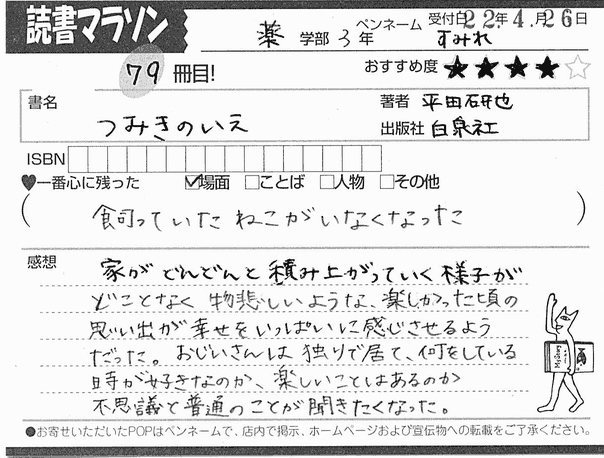 読書マラソン
受付日22年4月26日
薬 学部 3年 ペンネーム すみれ
79冊目! おすすめ度 ★★★★☆
書名 つみきのいえ
著者 平田研也
出版社 白泉社
ISBN
♥一番心に残った ☑場面 □ことば □人物 □その他
(飼っていたねこがいなくなった)
感想
家がどんどんと積み上がっていく様子が
どことなく物悲しいような、楽しかった頃の
思い出が幸せをいっぱいに感じさせるよう
だった。おじいさんは独りで居て、何をしている
時が好きなのか、楽しいことはあるのか
不思議と普通のことが聞きたくなった。
●お寄せいただいたPOPはペンネームで、店内で掲示、ホームページおよび宣伝物への転載をご了承ください。